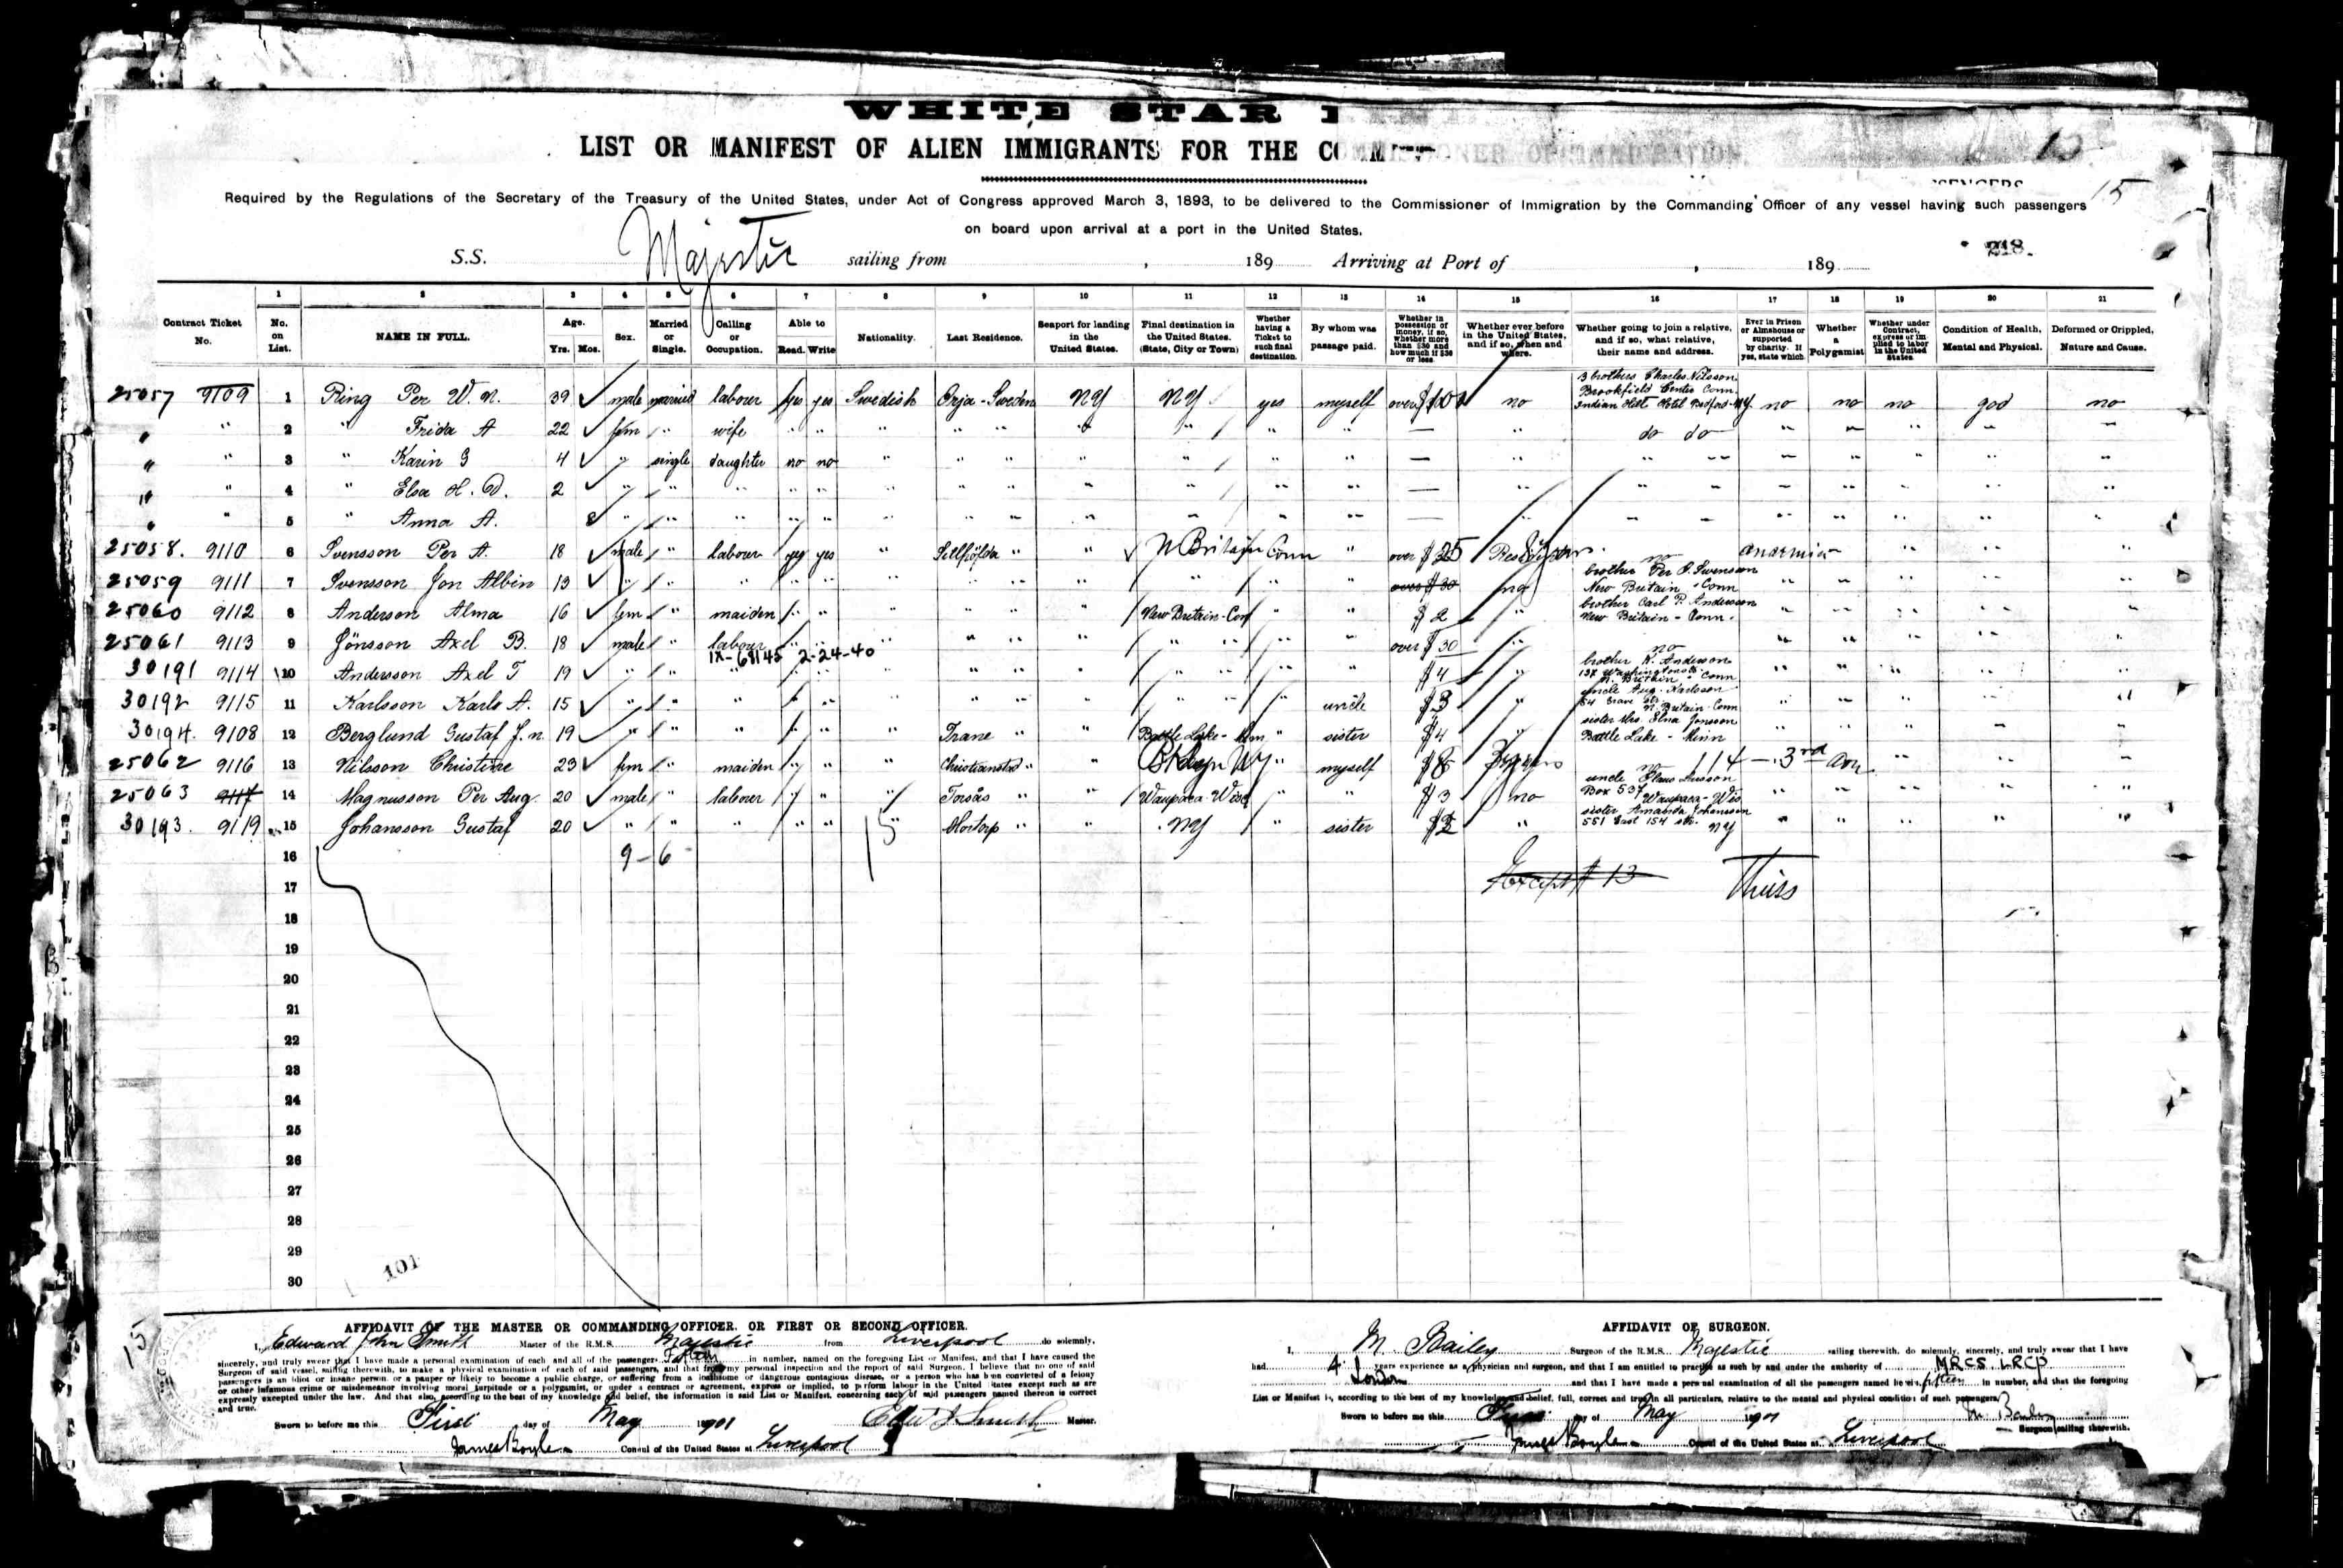 WHITE STAR
LIST OR MANIFEST OF ALIEN IMMIGRANTS FOR THE COMMISSIONER OF IMMIGRATION.
15
Required by the Regulations of the Secretary of the Treasury of the United States, under Act of Congress approved March 3, 1893, to be delivered to the Commissioner of Immigration by the Commanding Officer of any vessel having such passengers
on board upon arrival at a port in the United States.
218
S.S. Majestic sailing from , 189 Arriving at Port of , 189
1 2 3 4 5 6 7 8 9 10 11 12 13 14 15 16 17 18 19 20 21
Contract Ticket No. No. on List. NAME IN FULL. Age. Yrs. Mos. Sex. Married or Single. Calling or Occupation. Able to Read. Write Nationality. Last Residence. Seaport for landing in the United States. Final destination in the United States. (State, City or Town) Whether having a Ticket to such final destination. By whom was passage paid. Whether in possession of money, if so, whether more than $30 and how much if $30 or less. Whether ever before in the United States, and if so, when and where. Whether going to join a relative, and if so, what relative, their name and address. Ever in Prison or Almshouse or supported by charity. If yes, state which Whether a Polygamist Whether under Contract, express or implied to labor in the United States Condition of Health, Mental and Physical. Deformed or Crippled, Nature and Cause.
25057 9109 1 Ring Per W. N. 39 male married labour yes yes Swedish Orja - Sweden NY NY yes myself over $100 no 3 brothers Charles Nilsson Brookfield Centre Conn Indian Hotel no no no god no
" " 2 " Frida A 22 fem " wife " " " " " " " " " — " do do " " " " "
" " 3 " Karin G 4 " single daughter no no " " " " " " " — " " " " " " " "
" " 4 " Elsa H. D. 2 " " " " " " " " " " " " — " " " " " " " "
" " 5 " Anna A. 8 " " " " " " " " " " " — " " " " " " " "
25058. 9110 6 Svensson Per A. 18 male " labour yes yes " " " N Britain Conn " over $25 no
25059 9111 7 Svensson Jon Albin 13 " " " " " " " " " " " " over $30 no brother Per P. Swensson New Britain - Conn " " " " "
25060 9112 8 Anderson Alma 16 fem " maiden " " " " " " New Britain - Con " " $2 " brother Carl P. Andersson New Britain - Conn. " " " " "
25061 9113 9 Jönsson Axel B. 18 male " labour " " " " " " " " " over $30 " no " " " " "
1X-68145 2-24-40
30191 9114 10 Andersson Axel T 19 " " " " " " " " " " " " $4 " brother K. Anderson 137 Washington N. Britain - Conn " " " " "
30192 9115 11 Karlsson Karls A. 15 " " " " " " " " " " " uncle $3 " uncle Aug. Karlsson N. Britain - Conn " " " " "
30194. 9108 12 Berglund Gustaf J. n. 19 " " " " " " Trane " " Battle Lake - Minn " sister $4 " sister Mrs. Elna Jonsson Battle Lake - Minn " " " " "
25062 9116 13 Nilsson Christine 23 fem " maiden " " " Christianstad " " Bklyn NY " myself $8 114 - 3rd Ave
25063 9117 14 Magnusson Per Aug. 20 male " labour " " " Torsås " " Waupaca - Wisc " " $3 no uncle Claus Larsson Box 537 Waupaca - Wis " " " " "
30193. 9119 15 Johansson Gustaf 20 " " " " " " Mortorp " " NY " sister $2 " sister Amanda Johansson 551 East 154 str. NY " " " " "
16 9 - 6 15
17 Except # 13 Thiss
18
19
20
21
22
23
24
25
26
27
28
29
30
101
15
AFFIDAVIT OF THE MASTER OR COMMANDING OFFICER, OR FIRST OR SECOND OFFICER.
I, Edward John Smith Master of the R.M.S. Majestic from Liverpool do solemnly,
sincerely, and truly swear that I have made a personal examination of each and all of the passengers Fifteen in number, named on the foregoing List or Manifest, and that I have caused the
Surgeon of said vessel, sailing therewith, to make a physical examination of each of said passengers, and that from my personal inspection and the report of said Surgeon, I believe that no one of said
passengers is an idiot or insane person, or a pauper or likely to become a public charge, or suffering from a loathsome or dangerous contagious disease, or a person who has been convicted of a felony
or other infamous crime or misdemeanor involving moral turpitude or a polygamist, or under a contract or agreement, express or implied, to perform labour in the United States except such as are
expressly excepted under the law. And that also, according to the best of my knowledge and belief, the information in said List or Manifest, concerning each of said passengers named thereon is correct
and true.
Sworn to before me this First day of May 1901 Edw J Smith Master.
James Boyle Consul of the United States at Liverpool
AFFIDAVIT OF SURGEON.
I, M. Bailey Surgeon of the R.M.S. Majestic sailing therewith, do solemnly, sincerely, and truly swear that I have
had 4 years experience as a physician and surgeon, and that I am entitled to practise as such by and under the authority of MRCS LRCP
London and that I have made a personal examination of all the passengers named herein, fifteen in number, and that the foregoing
List or Manifest is, according to the best of my knowledge and belief, full, correct and true in all particulars, relative to the mental and physical condition of such passengers.
Sworn to before me this First day of May 1901 M Bailey
Surgeon sailing therewith.
James Boyle Consul of the United States at Liverpool